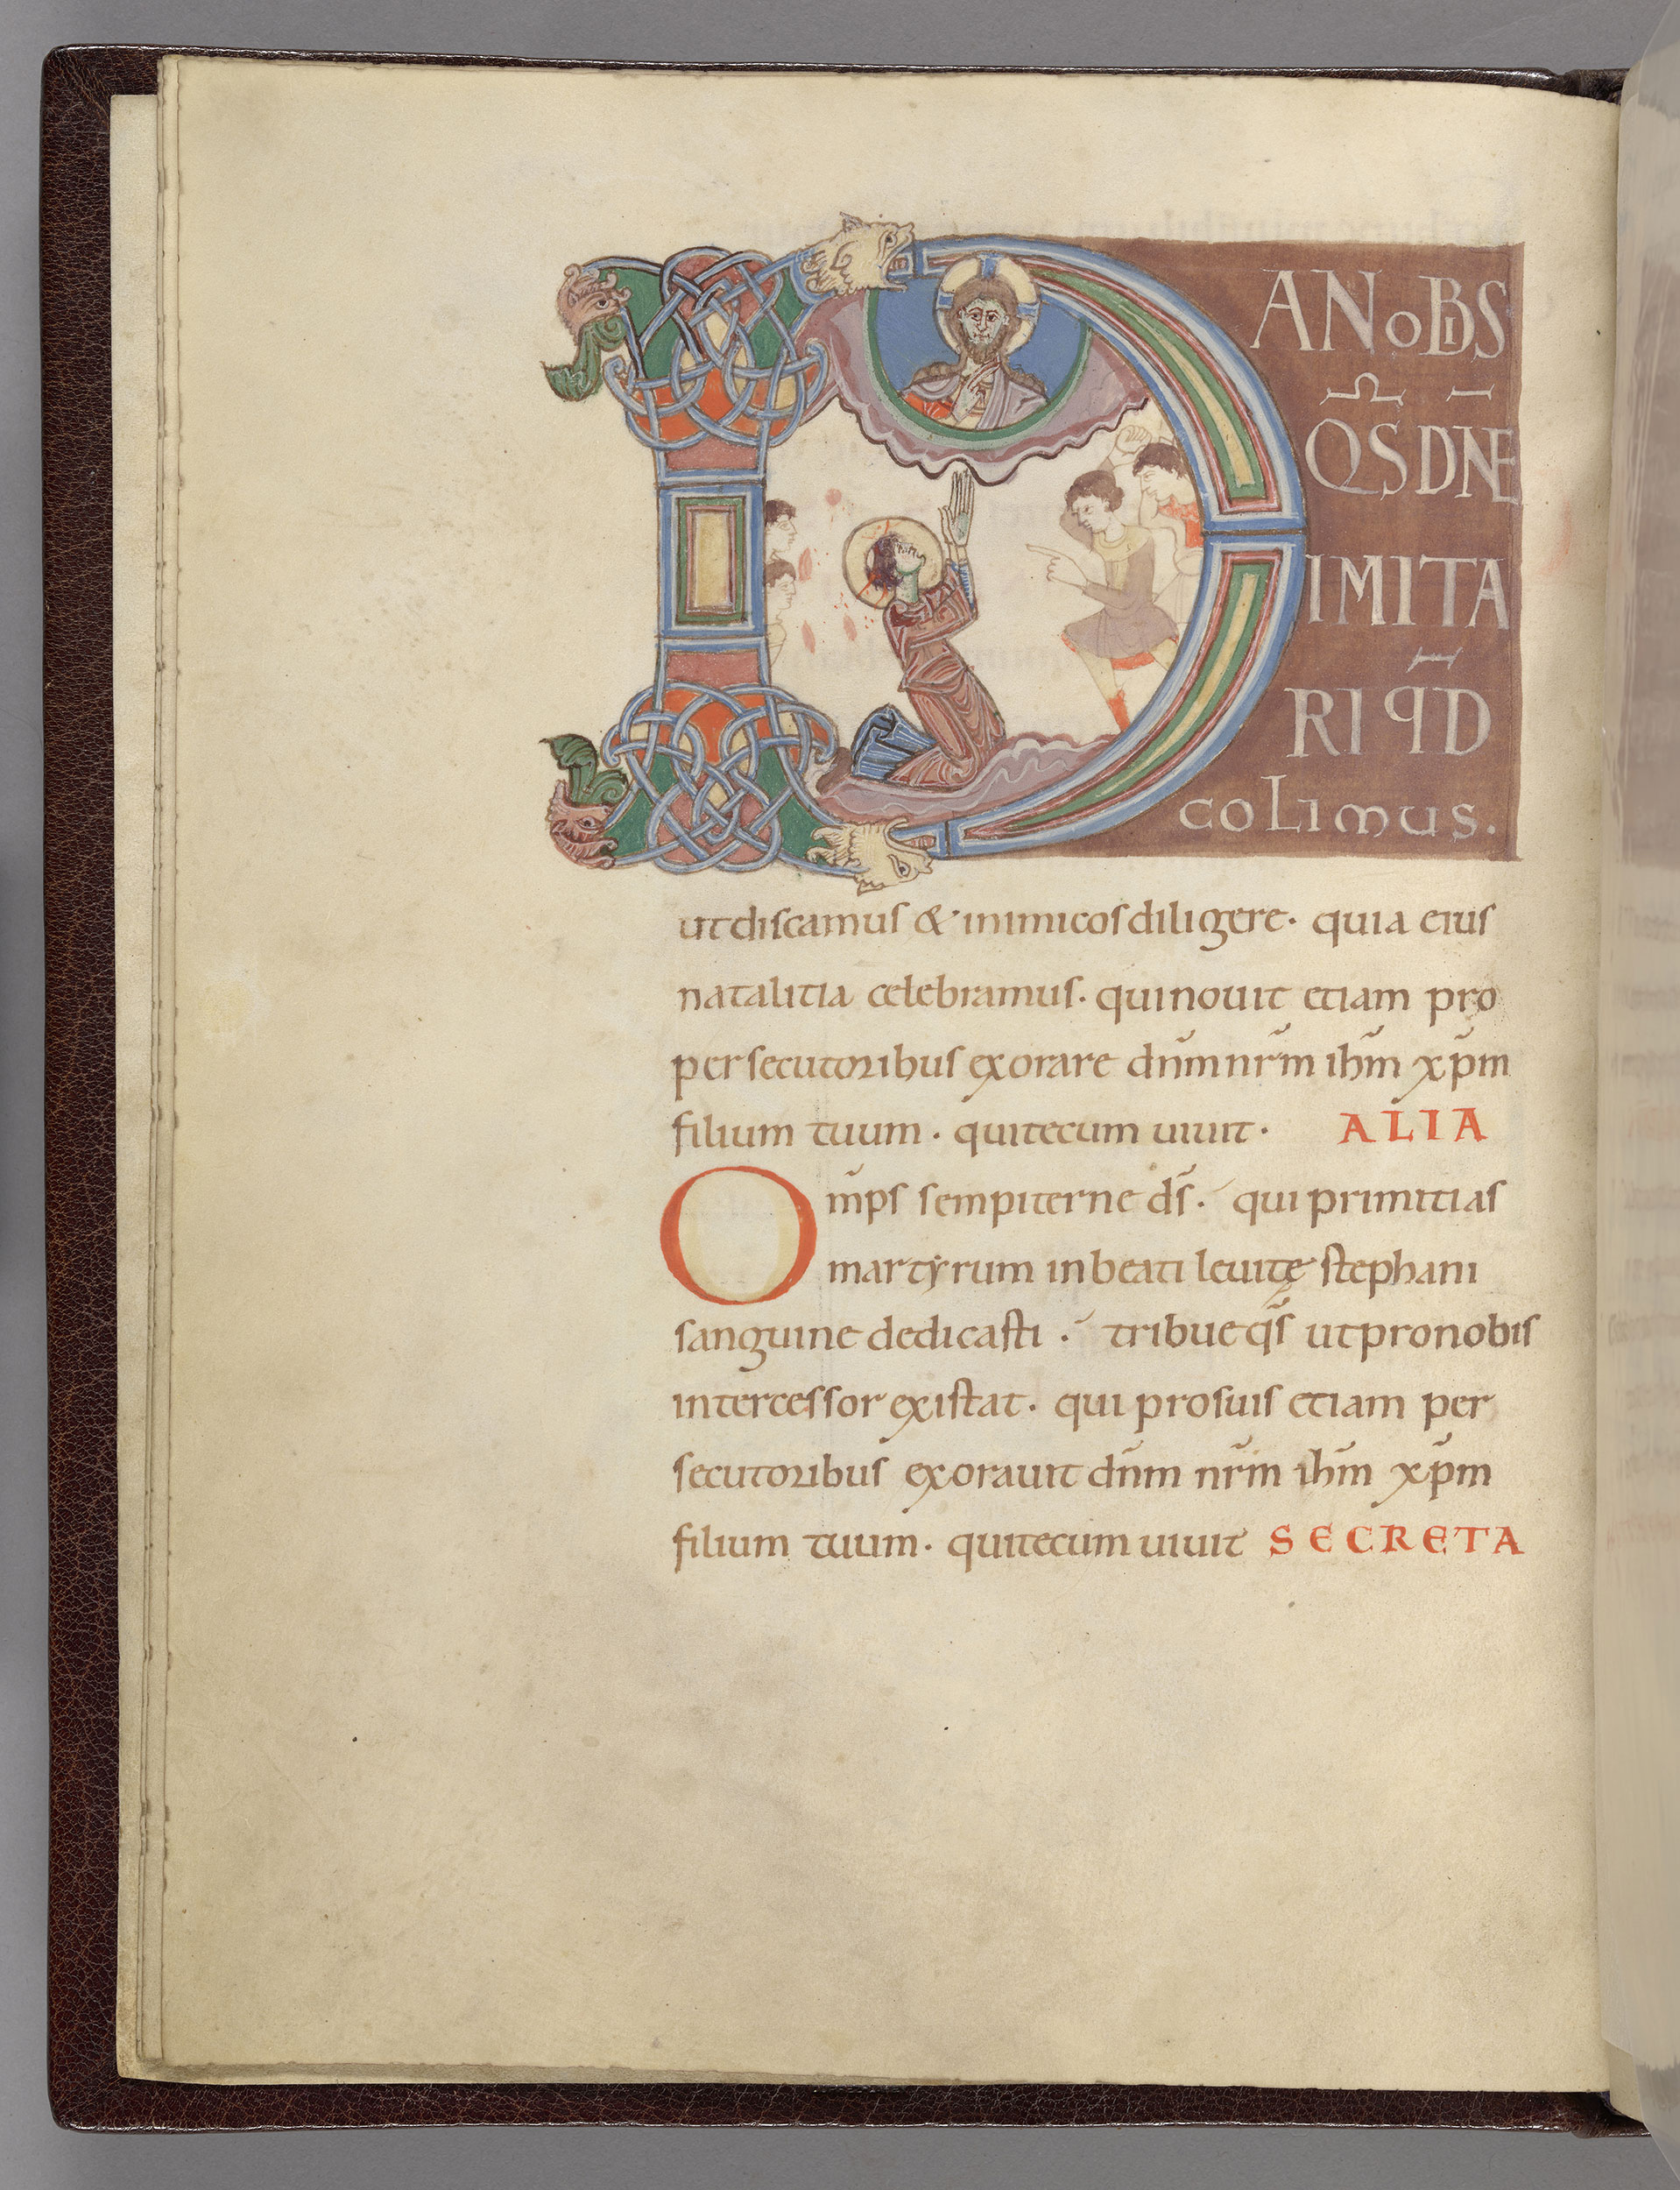 DANOBIS
QS DNE
IMITA
RI QD
COLIMUS.
ut discamus & inimicos diligere· quia eius
natalitia celebramus· qui nouit etiam pro
persecutoribus exorare dn̄m nr̄m ih̄m xp̄m
filium tuum· qui tecum uiuit· ALIA
Om̄ps sempiterne d̄s· qui primitias
martyrum in beati leuitę stephani
sanguine dedicasti· tribue q̄s ut pro nobis
intercessor existat· qui pro suis etiam per
secutoribus exorauit dn̄m nr̄m ih̄m xp̄m
filium tuum· qui tecum uiuit SECRETA